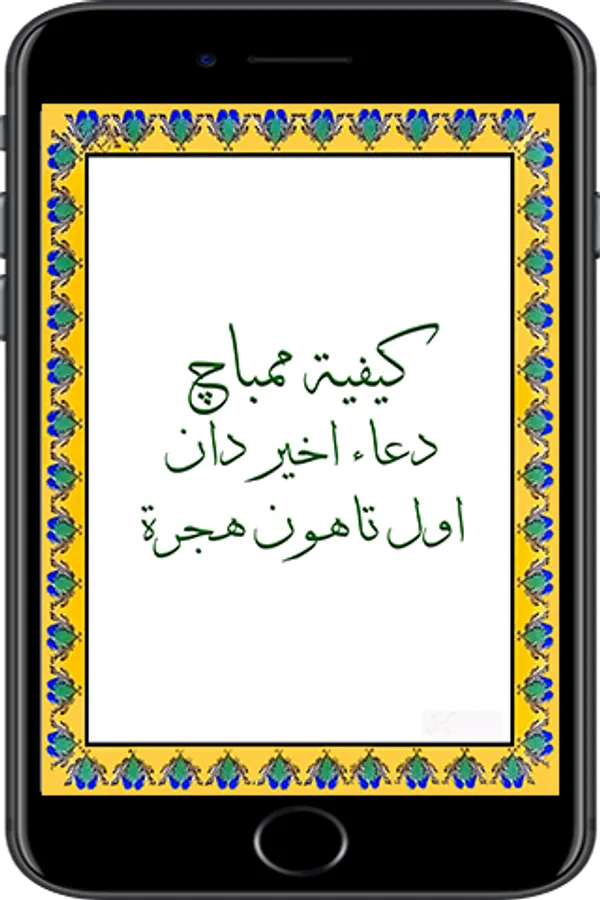 كيفية ممباچ
دعاء اخير دان
اول تاهون هجرة